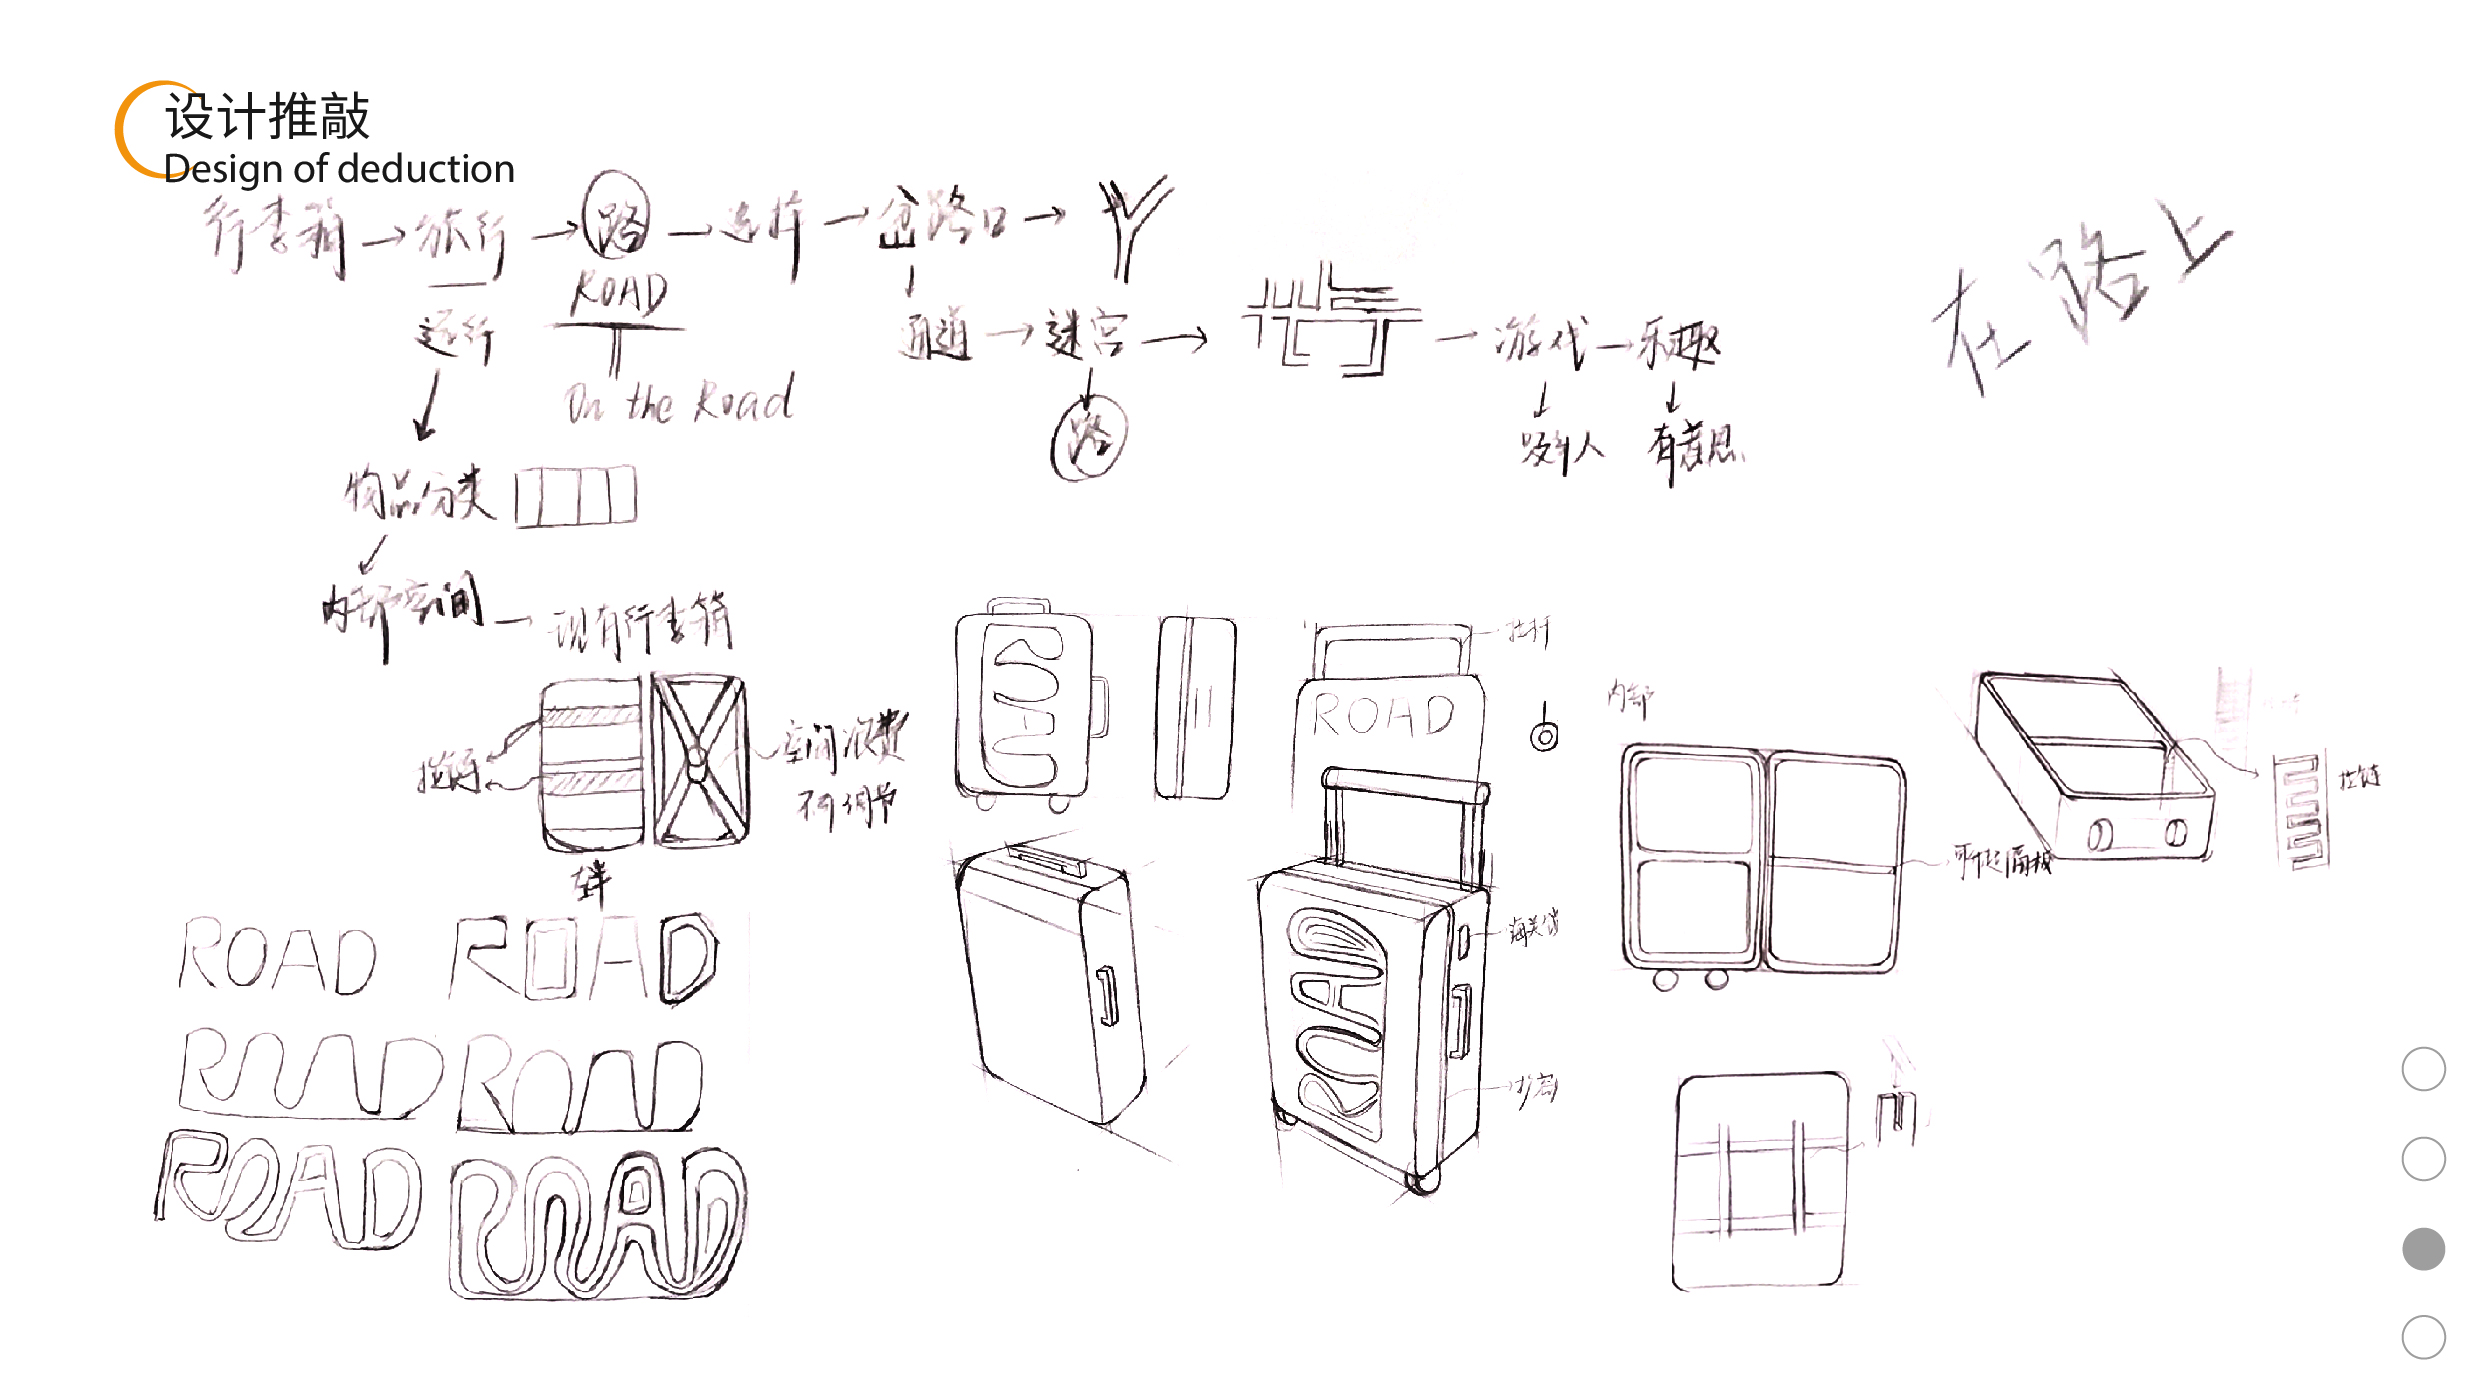 设计推敲
Design of deduction
行李箱 → 旅行 → 路 → 选择 → 岔路口 →
ROAD
On the Road
通道 → 迷宫 →
游戏 - 乐趣
路
吸引人
有意思
在路上
物品分类
内部空间 → 现有行李箱
拉链
空间浪费
不可调节
ROAD
ROAD
ROAD
ROAD
ROAD
ROAD
ROAD
拉杆
ROAD
ROAD
海关锁
内部
隔板
拉链